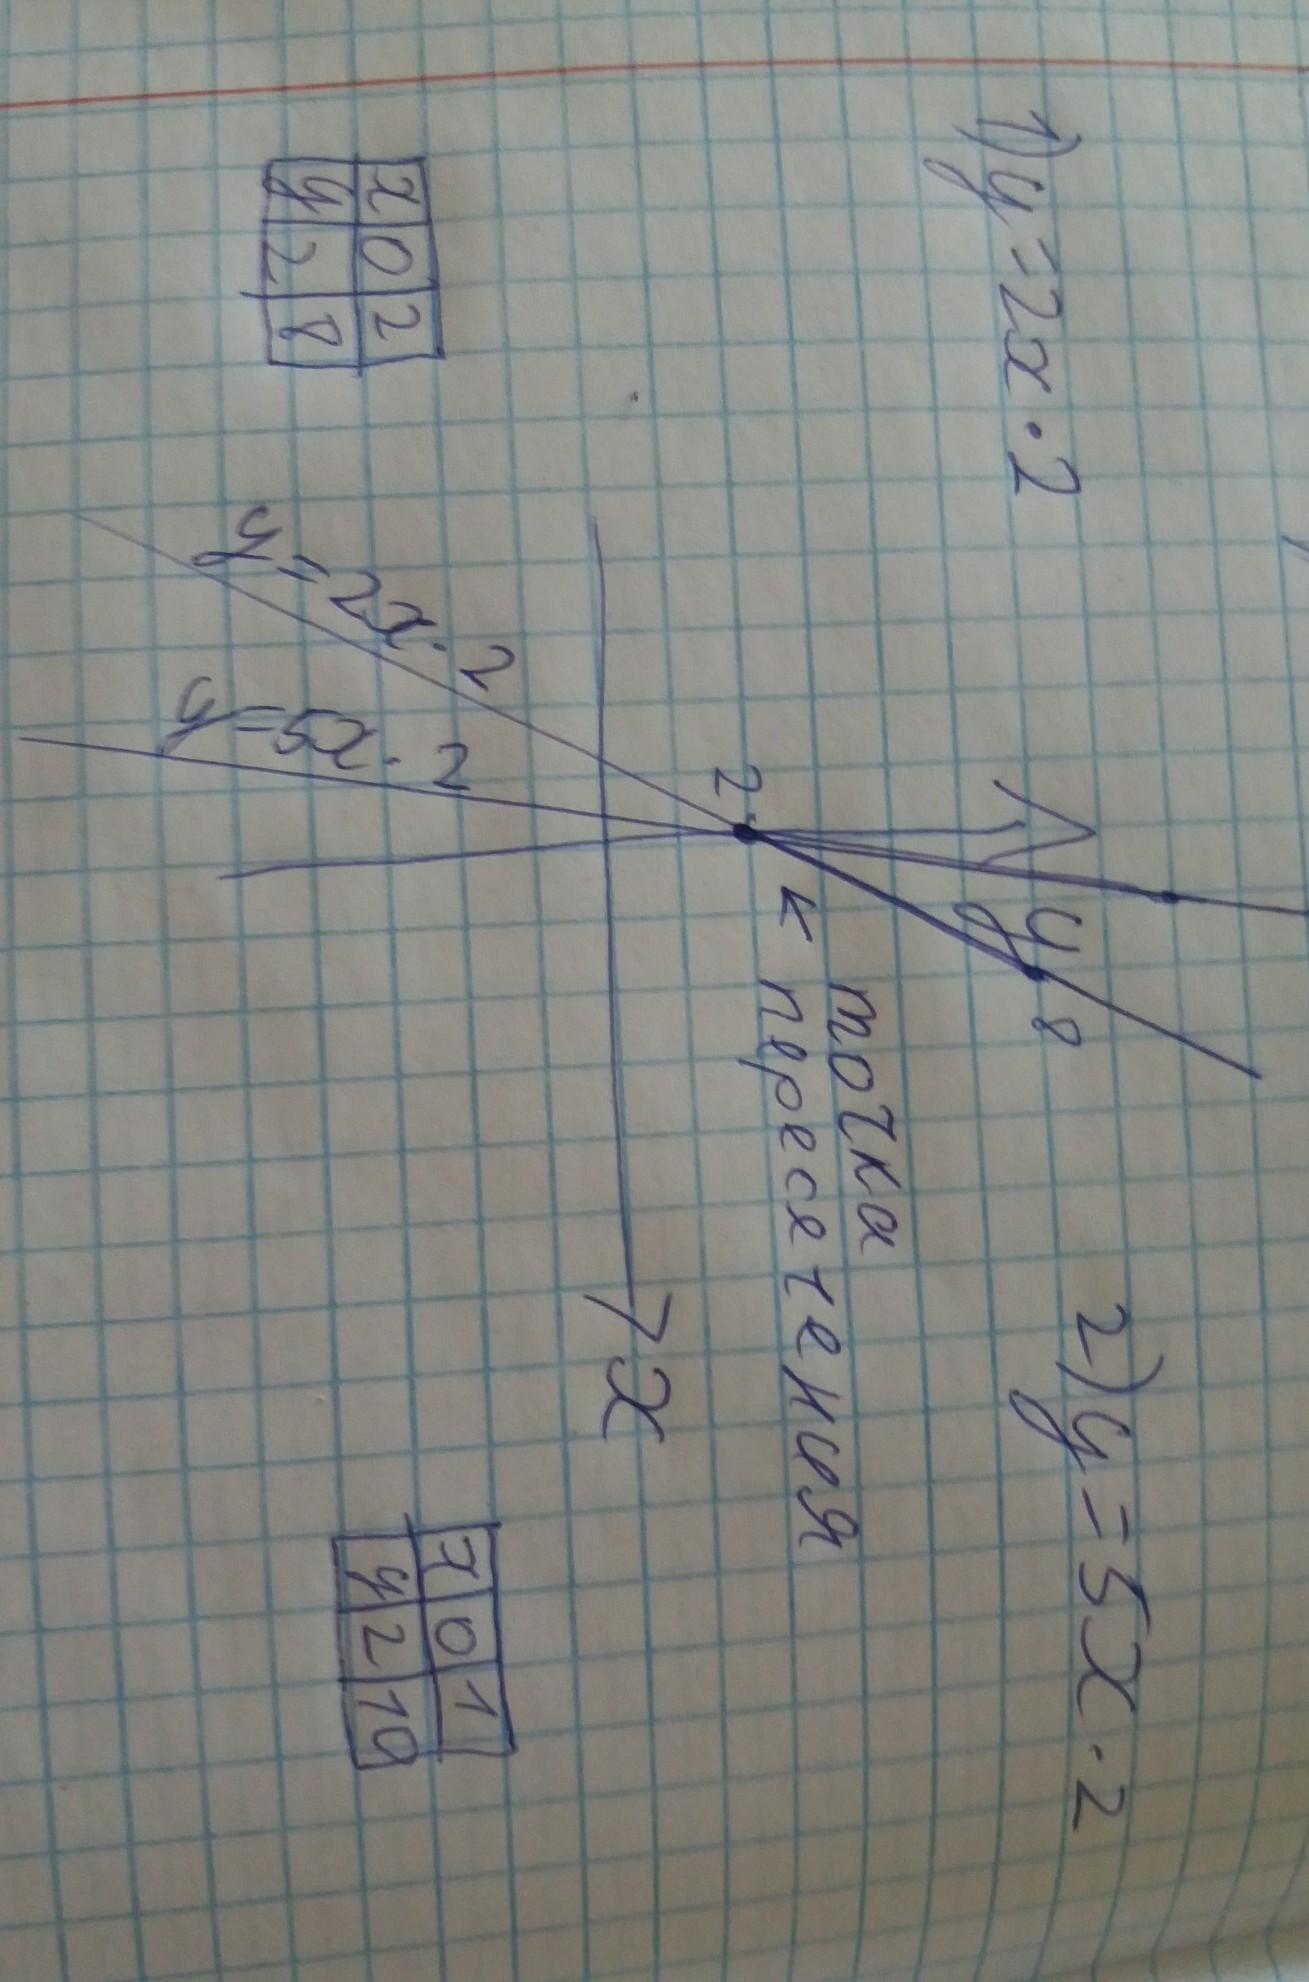 1) y = 2x · 2
2) y = 5x · 2
y
8
точка
пересечения
2
x
x 0 2
y 2 8
y = 2x · 2
y = 5x · 2
x 0 1
y 2 10